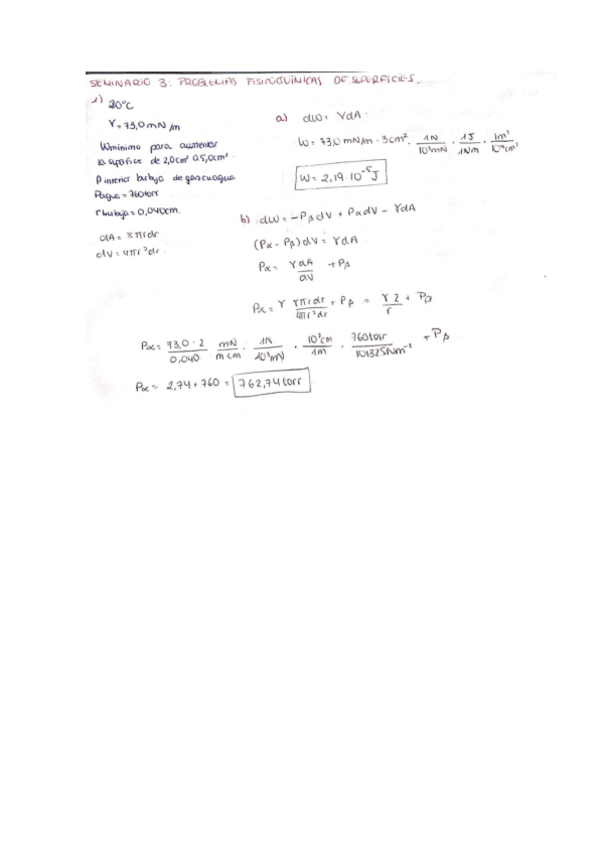 SEMINARIO 3: PROBLEMAS FISICOQUÍMICAS DE SUPERFICIES.
1) 20°C
γ = 73,0 mN/m
W mínimo para aumentar
la superficie de 2,0cm² a 5,0cm².
P interior burbuja de gas en agua
Pagua = 760torr
r burbuja = 0,040cm.
dA = 8πrdr
dV = 4πr²dr.
a) dW = γdA.
W = 73,0 mN/m · 3cm² · 1N/10³mN · 1J/1Nm · 1m²/10⁴cm²
W = 2,19·10⁻⁵J
b) dW = -Pβ dV + Pα dV - γdA
(Pα - Pβ)dV = γdA
Pα = γdA/dV + Pβ
Pα = γ 8πrdr/4πr²dr + Pβ = γ2/r + Pβ
Pα = 73,0·2/0,040 mN/m cm · 1N/10³mN · 10²cm/1m · 760torr/101325Nm⁻² + Pβ
Pα = 2,74 + 760 = 762,74torr